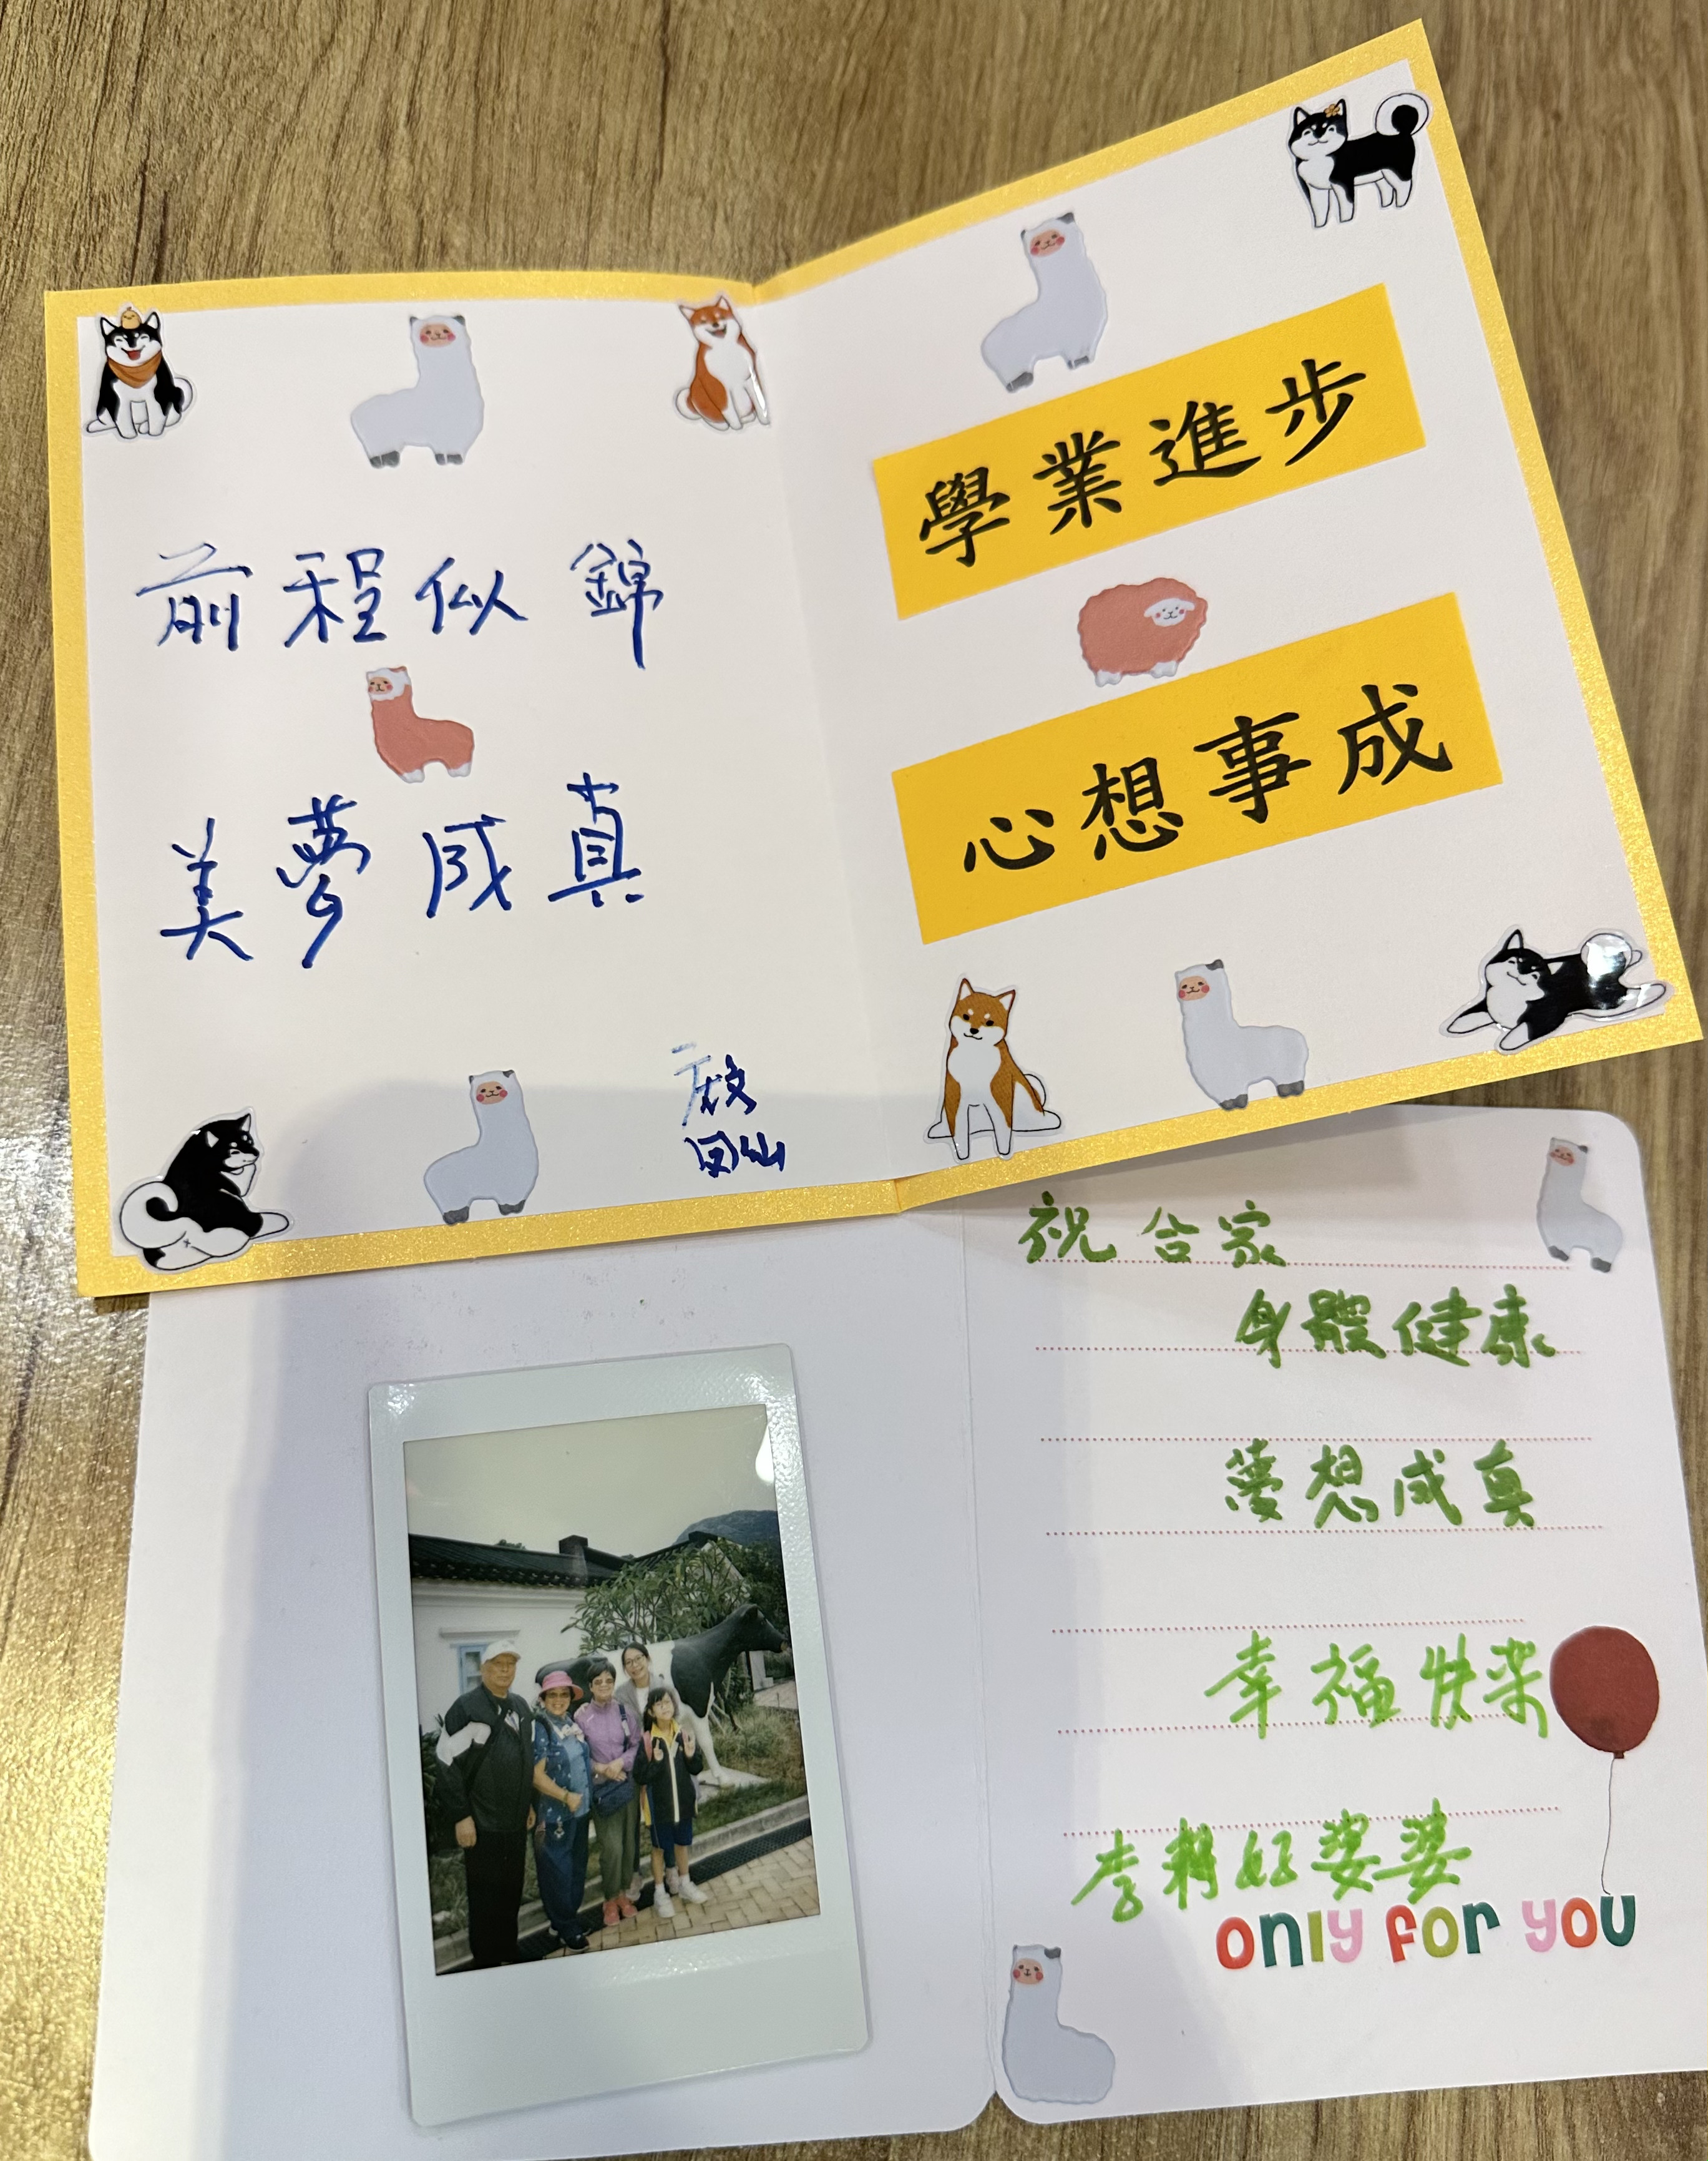 前程似錦
美夢成真
學業進步
心想事成
祝合家
身體健康
夢想成真
幸福快樂
婆婆
only for you